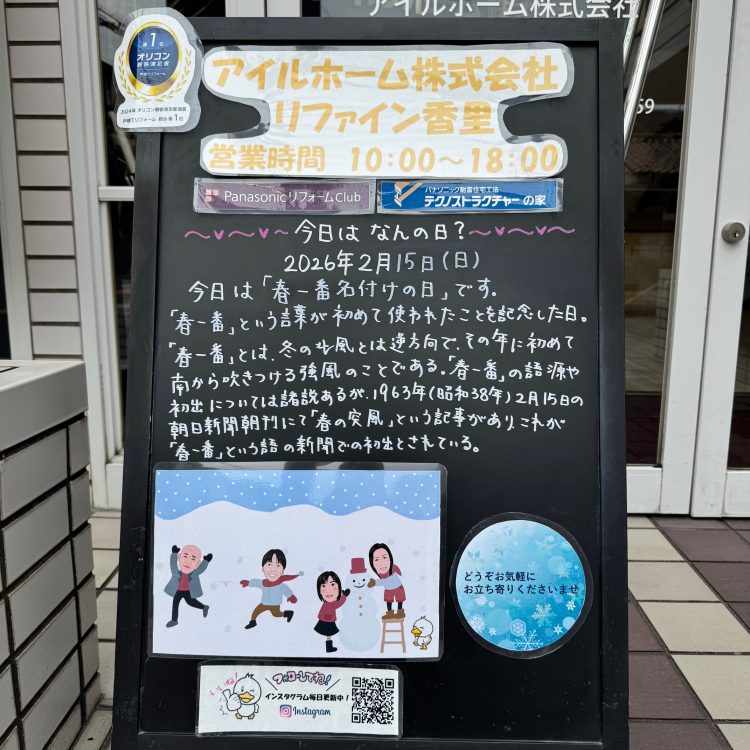 アイルホーム株式会社
59
第1位
オリコン
顧客満足度
戸建てリフォーム
2024年 オリコン顧客満足度調査
戸建てリフォーム 総合第1位
アイルホーム株式会社
リファイン香里
営業時間 10:00〜18:00
Panasonic リフォーム Club
パナソニック耐震住宅工法
テクノストラクチャーの家
〜♥〜♥〜今日は なんの日?〜♥〜♥〜
2026年2月15日(日)
今日は「春一番名付けの日」です。
「春一番」という言葉が初めて使われたことを記念した日。
「春一番」とは、冬の北風とは逆方向で、その年に初めて
南から吹きつける強風のことである。「春一番」の語源や
初出については諸説あるが、1963年(昭和38年)2月15日の
朝日新聞朝刊にて「春の突風」という記事があり、これが
「春一番」という語の新聞での初出とされている。
どうぞお気軽に
お立ち寄りくださいませ
いいね!
フォローしてね!
インスタグラム毎日更新中!
Instagram